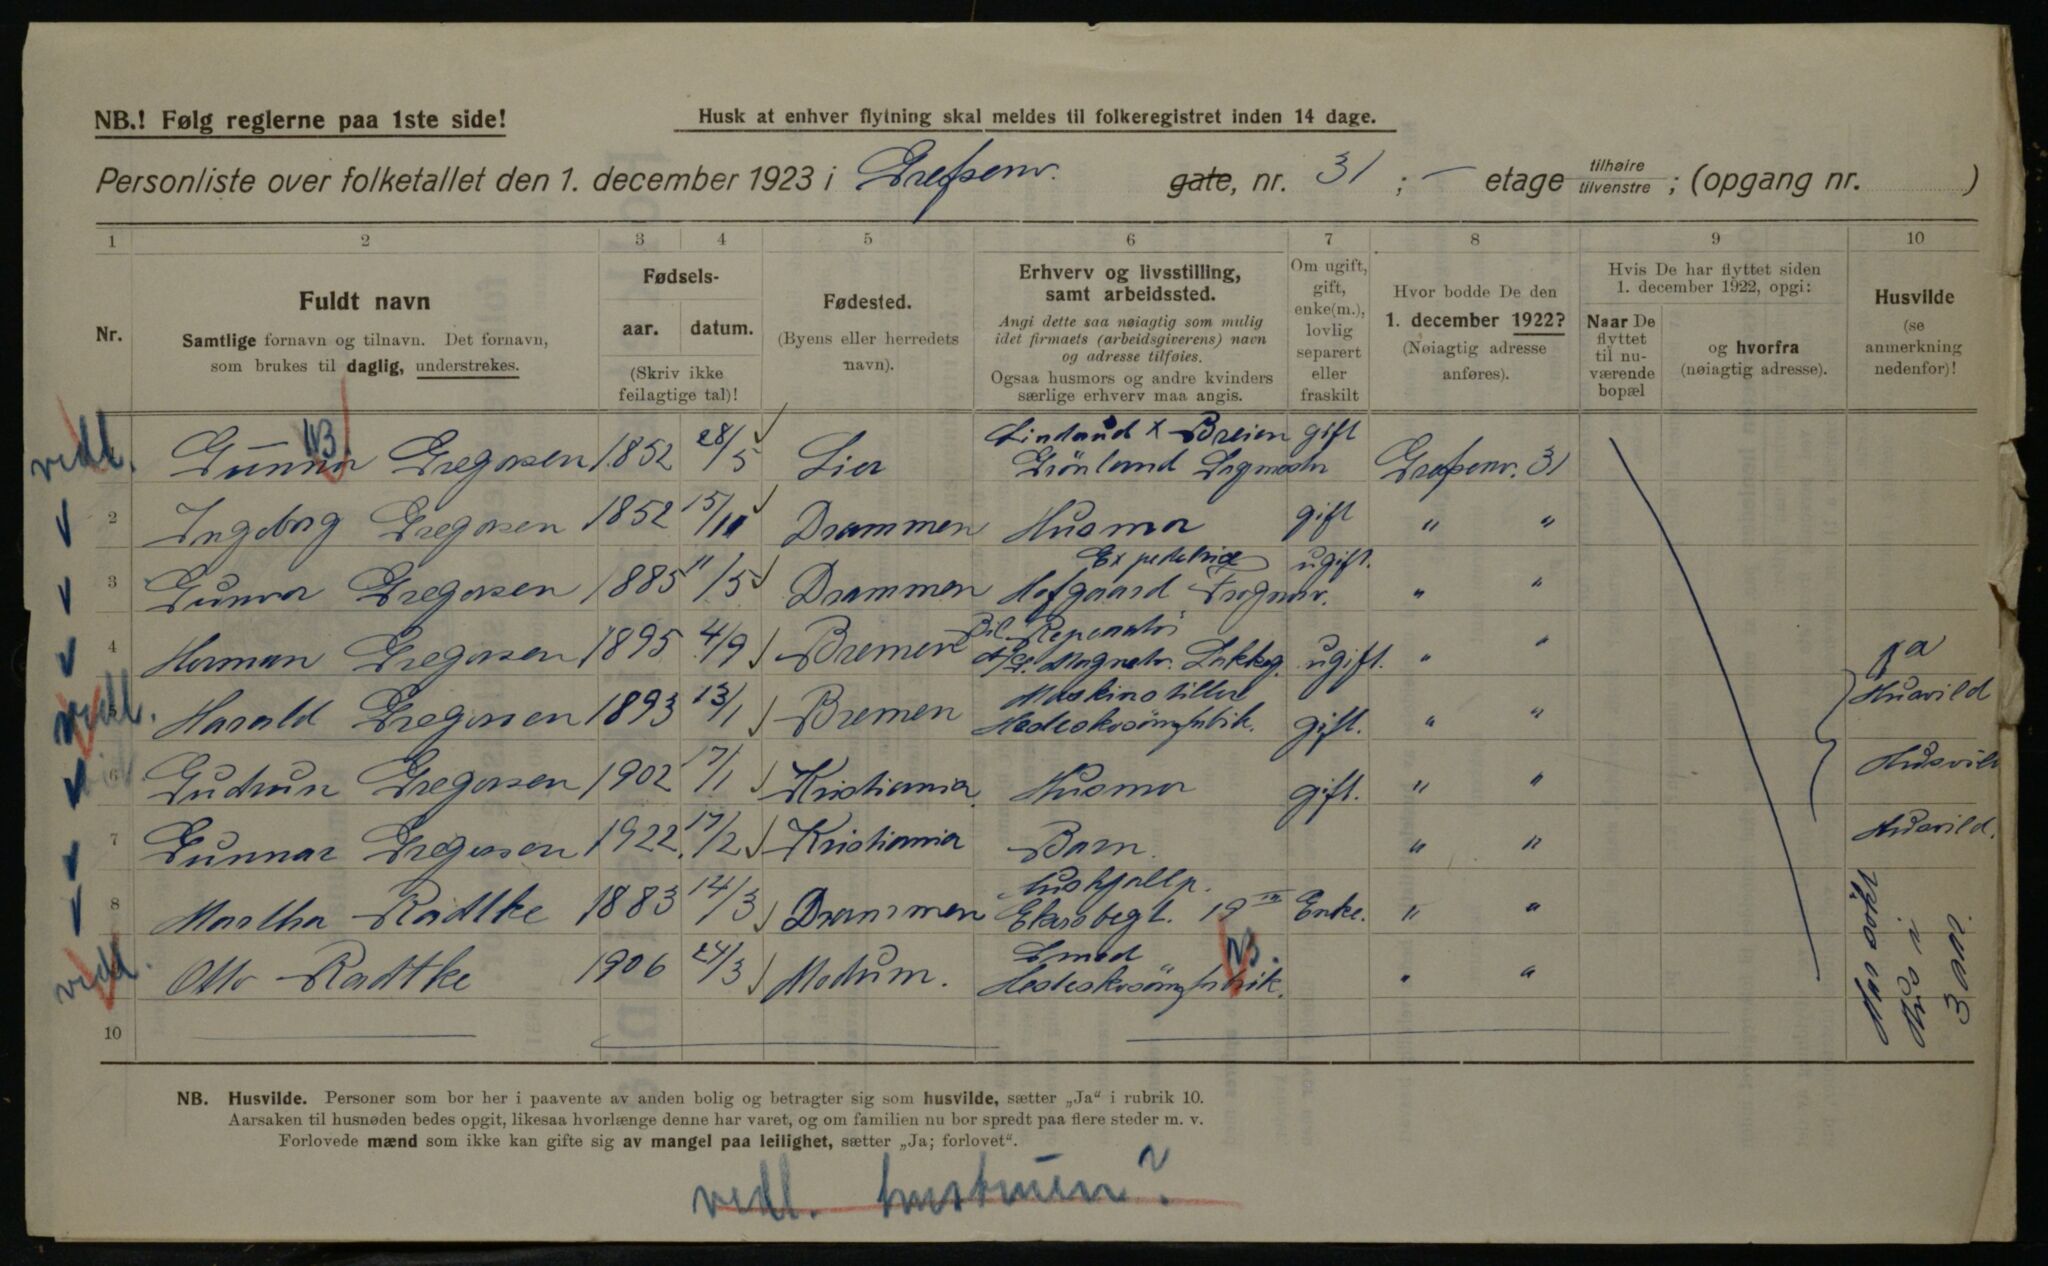 NB.! Følg reglerne paa 1ste side!
Husk at enhver flytning skal meldes til folkeregistret inden 14 dage.
Personliste over folketallet den 1. december 1923 i Grefsenv. gate, nr. 31 ; – etage tilhøire tilvenstre ; (opgang nr. )
1 2 3 4 5 6 7 8 9 10
Nr.
Fuldt navn
Samtlige fornavn og tilnavn. Det fornavn,
som brukes til daglig, understrekes.
Fødsels-
aar. datum.
(Skriv ikke
feilagtige tal)!
Fødested.
(Byens eller herredets
navn).
Erhverv og livsstilling,
samt arbeidssted.
Angi dette saa nøiagtig som mulig
idet firmaets (arbeidsgiverens) navn
og adresse tilføies.
Ogsaa husmors og andre kvinders
særlige erhverv maa angis.
Om ugift,
gift,
enke(m.),
lovlig
separert
eller
fraskilt
Hvor bodde De den
1. december 1922?
(Nøiagtig adresse
anføres).
Hvis De har flyttet siden
1. december 1922, opgi:
Naar De
flyttet
til nu-
værende
bopæl
og hvorfra
(nøiagtig adresse).
Husvilde
(se
anmerkning
nedenfor)!
vedl. Gunnar Gregersen 1852 28/5 Lier Breien Grönland gift Grefsenv. 31
2 Ingeborg Gregersen 1852 15/11 Drammen Husmor gift " "
3 Gunvor Gregersen 1885 11/5 Drammen Expeditrice Hofgaard Frognerv. ugift. " "
4 Herman Gregersen 1895 4/9 Bremen Bil Reperatör Lakkeg. ugift. " "
vedl. Harald Gregersen 1893 13/1 Bremen Maskinstiller Hesteskosömfabrik. gift. " " Ja Husvild
6 Gudrun Gregersen 1902 17/1 Kristiania Husmor gift. " " Husvild
7 Gunnar Gregersen 1922. 17/2 Kristiania Barn. " " Husvild.
8 Martha Radtke 1883 14/3 Drammen Hushjælp. 19 Enke. " "
vedl. Otto Radtke 1906 24/3 Modum. Smed Hesteskosömfabrik. " "
Har sökt
Hus i
3 aar.
10
NB. Husvilde. Personer som bor her i paavente av anden bolig og betragter sig som husvilde, sætter „Ja“ i rubrik 10.
Aarsaken til husnøden bedes opgit, likesaa hvorlænge denne har varet, og om familien nu bor spredt paa flere steder m. v.
Forlovede mænd som ikke kan gifte sig av mangel paa leilighet, sætter „Ja; forlovet“.
vedl. hustruen?